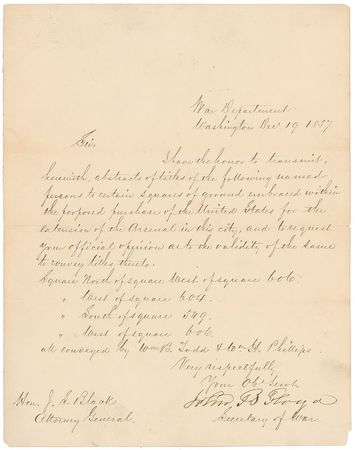 War Department
Washington Dec 19 1857
Sir,
I have the honor to transmit,
herewith, abstracts of titles of the following named
persons to certain squares of ground embraced within
the proposed purchase of the United States for the
extension of the Arsenal in this city, and to request
your official opinion as to the validity of the same
to convey titles thereto.
Square North of square West of square 606.
" West of square 604.
" South of square 549.
" West of square 606.
all conveyed by Wm B. Todd & Wm H. Phillips.
Very respectfully
Your Obt Servt
John B Floyd
Secretary of War.
Hon. J. S. Black
Attorney General.